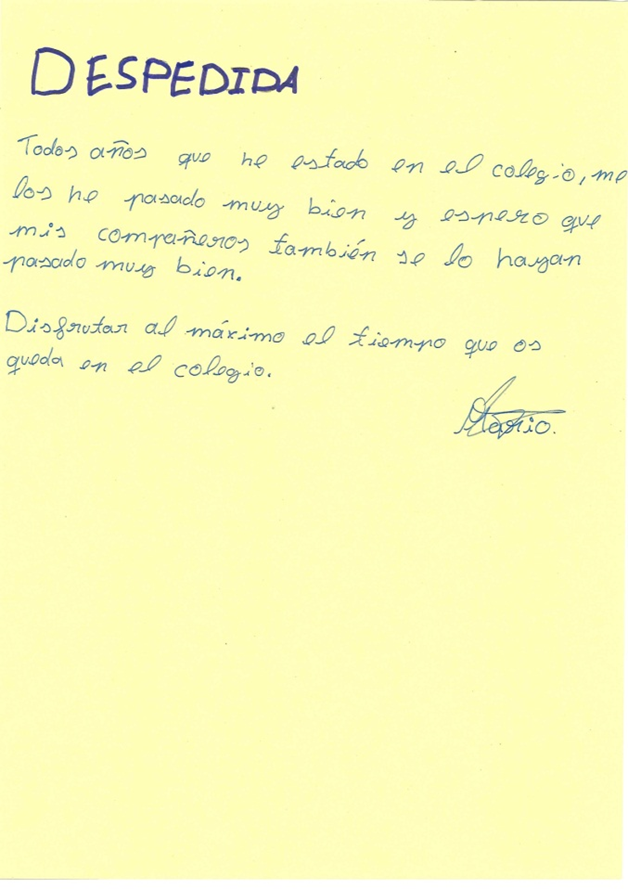 DESPEDIDA
Todos años que he estado en el colegio, me
los he pasado muy bien y espero que
mis compañeros también se lo hayan
pasado muy bien.
Disfrutar al máximo el tiempo que os
queda en el colegio.
Mario.